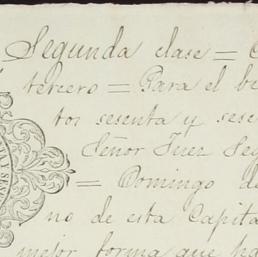 Segunda clase =
tercero = Para el bi
tos sesenta y sese
Señor Juez Seg
= Domingo de
no de esta Capita
mejor forma que ha